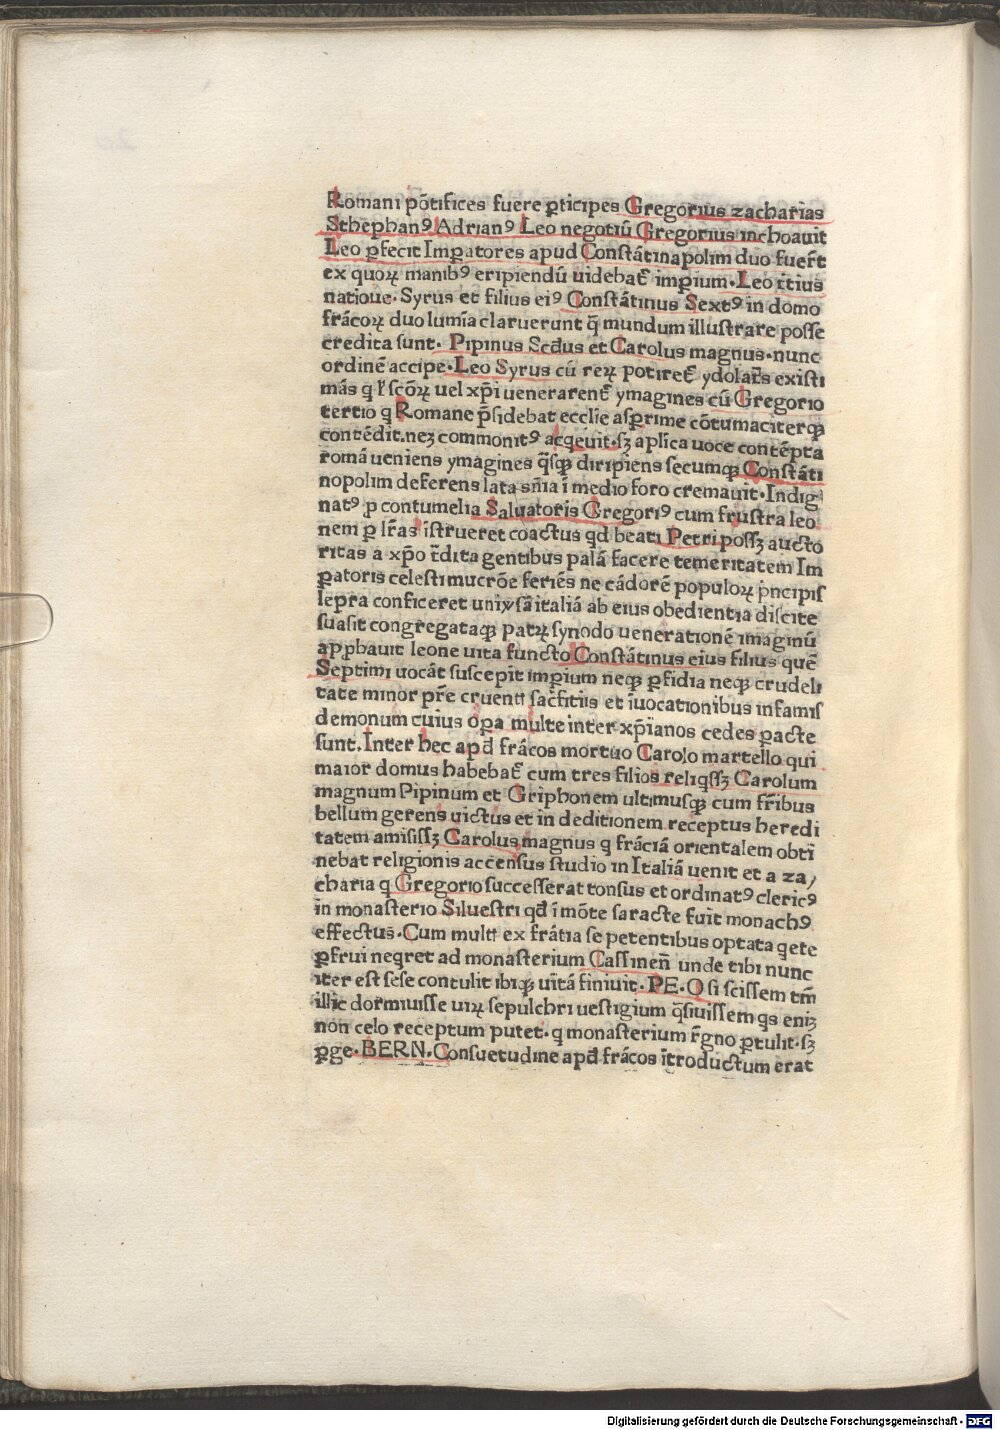 Romani põtifices fuere ꝑticipes Gregorius zacharias
Stbephanꝰ Adrianꝰ Leo negotiũ Gregorius inchoauit
Leo ꝑfecit Imꝑatores apud Constãtinapolim duo fuer̃t
ex quoꝝ manibꝰ eripiendũ uidebat̃ imꝑium. Leo t̃tius
natioue. Syrus et filius eiꝰ Constãtinus Sextꝰ in domo
frãcoꝝ duo lumĩa claruerunt q̃ mundum illustrare posse
credita sunt. Pipinus Scḋus et Carolus magnus. nunc
ordinẽ accipe. Leo Syrus cũ reꝝ potiret̃ ydolat̃s existi
mãs q l̃ scõꝝ uel xp̃i uenerarent̃ ymagines cũ Gregorio
tertio q Romane p̃sidebat ecclie asꝑrime cõtumaciterqꝫ
contẽdit. neꝫ commonitꝰ acqeuit. sꝫ aplica uoce contẽpta
romã ueniens ymagines q̃sqꝫ diripiens secumqꝫ Constãti
nopolim deferens lata sñia ĩ medio foro cremauit. Indig
natꝰ ꝓ contumelia Saluatoris Gregoriꝰ cum frustra leo
nem ꝑ lr̃as ĩstrueret coactus qd beati Petri possꝫ aucto
ritas a xp̃o t̃dita gentibus palã facere temeritatem Im
ꝑatoris celesti mucrõe feriẽs ne cãdorẽ populoꝝ pncipis
lepra conficeret uniṽsã italiã ab eius obedientia discite
suasit congregataqꝫ patꝝ synodo uenerationẽ imaginũ
apꝓbauit leone uita functo Constãtinus eius filius quẽ
Septimi uocãt suscepit imꝑium neqꝫ ꝑfidia neqꝫ crudeli
tate minor pr̃e cruenti sac̃fitiis et ĩuocationibus infamis
demonum cuius oꝑa multe inter xp̃ianos cedes ꝑacte
sunt. Inter hec apḋ frãcos mortuo Carolo martello qui
maior domus habebat̃ cum tres filios reliqssꝫ Carolum
magnum Pipinum et Griphonem ultimusqꝫ cum fr̃ibus
bellum gerens uictus et in deditionem receptus heredi
tatem amisissꝫ Carolus magnus q frãciã orientalem obti
nebat religionis accensus studio in Italiã uenit et a za/
charia q Gregorio successerat tonsus et ordinatꝰ clericꝰ
in monasterio Siluestri qḋ ĩ mõte saracte fuit monachꝰ
effectus. Cum multi ex frãtia se petentibus optata qete
ꝑfrui neqret ad monasterium Cassineñ unde tibi nunc
iter est sese contulit ibiqꝫ uitã finiuit. PE. O si scissem tm̃
illic dormiuisse uiꝝ sepulchri uestigium q̃siuissem qs eniꝫ
non celo receptum putet. q monasterium r̃gno ꝑtulit. sꝫ
ꝑge. BERN. Consuetudine apḋ frãcos ĩtroductum erat
Digitalisierung gefördert durch die Deutsche Forschungsgemeinschaft - DFG